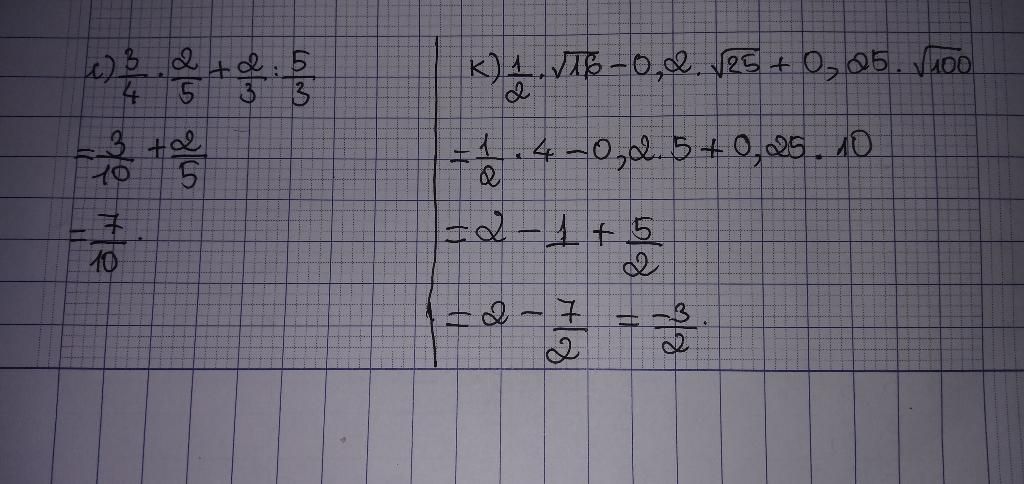 i) 3/4 . 2/5 + 2/3 : 5/3
= 3/10 + 2/5
= 7/10 .
K) 1/2 . √16 - 0,2 . √25 + 0,25 . √100
= 1/2 . 4 - 0,2 . 5 + 0,25 . 10
= 2 - 1 + 5/2
= 2 - 7/2 = -3/2 .